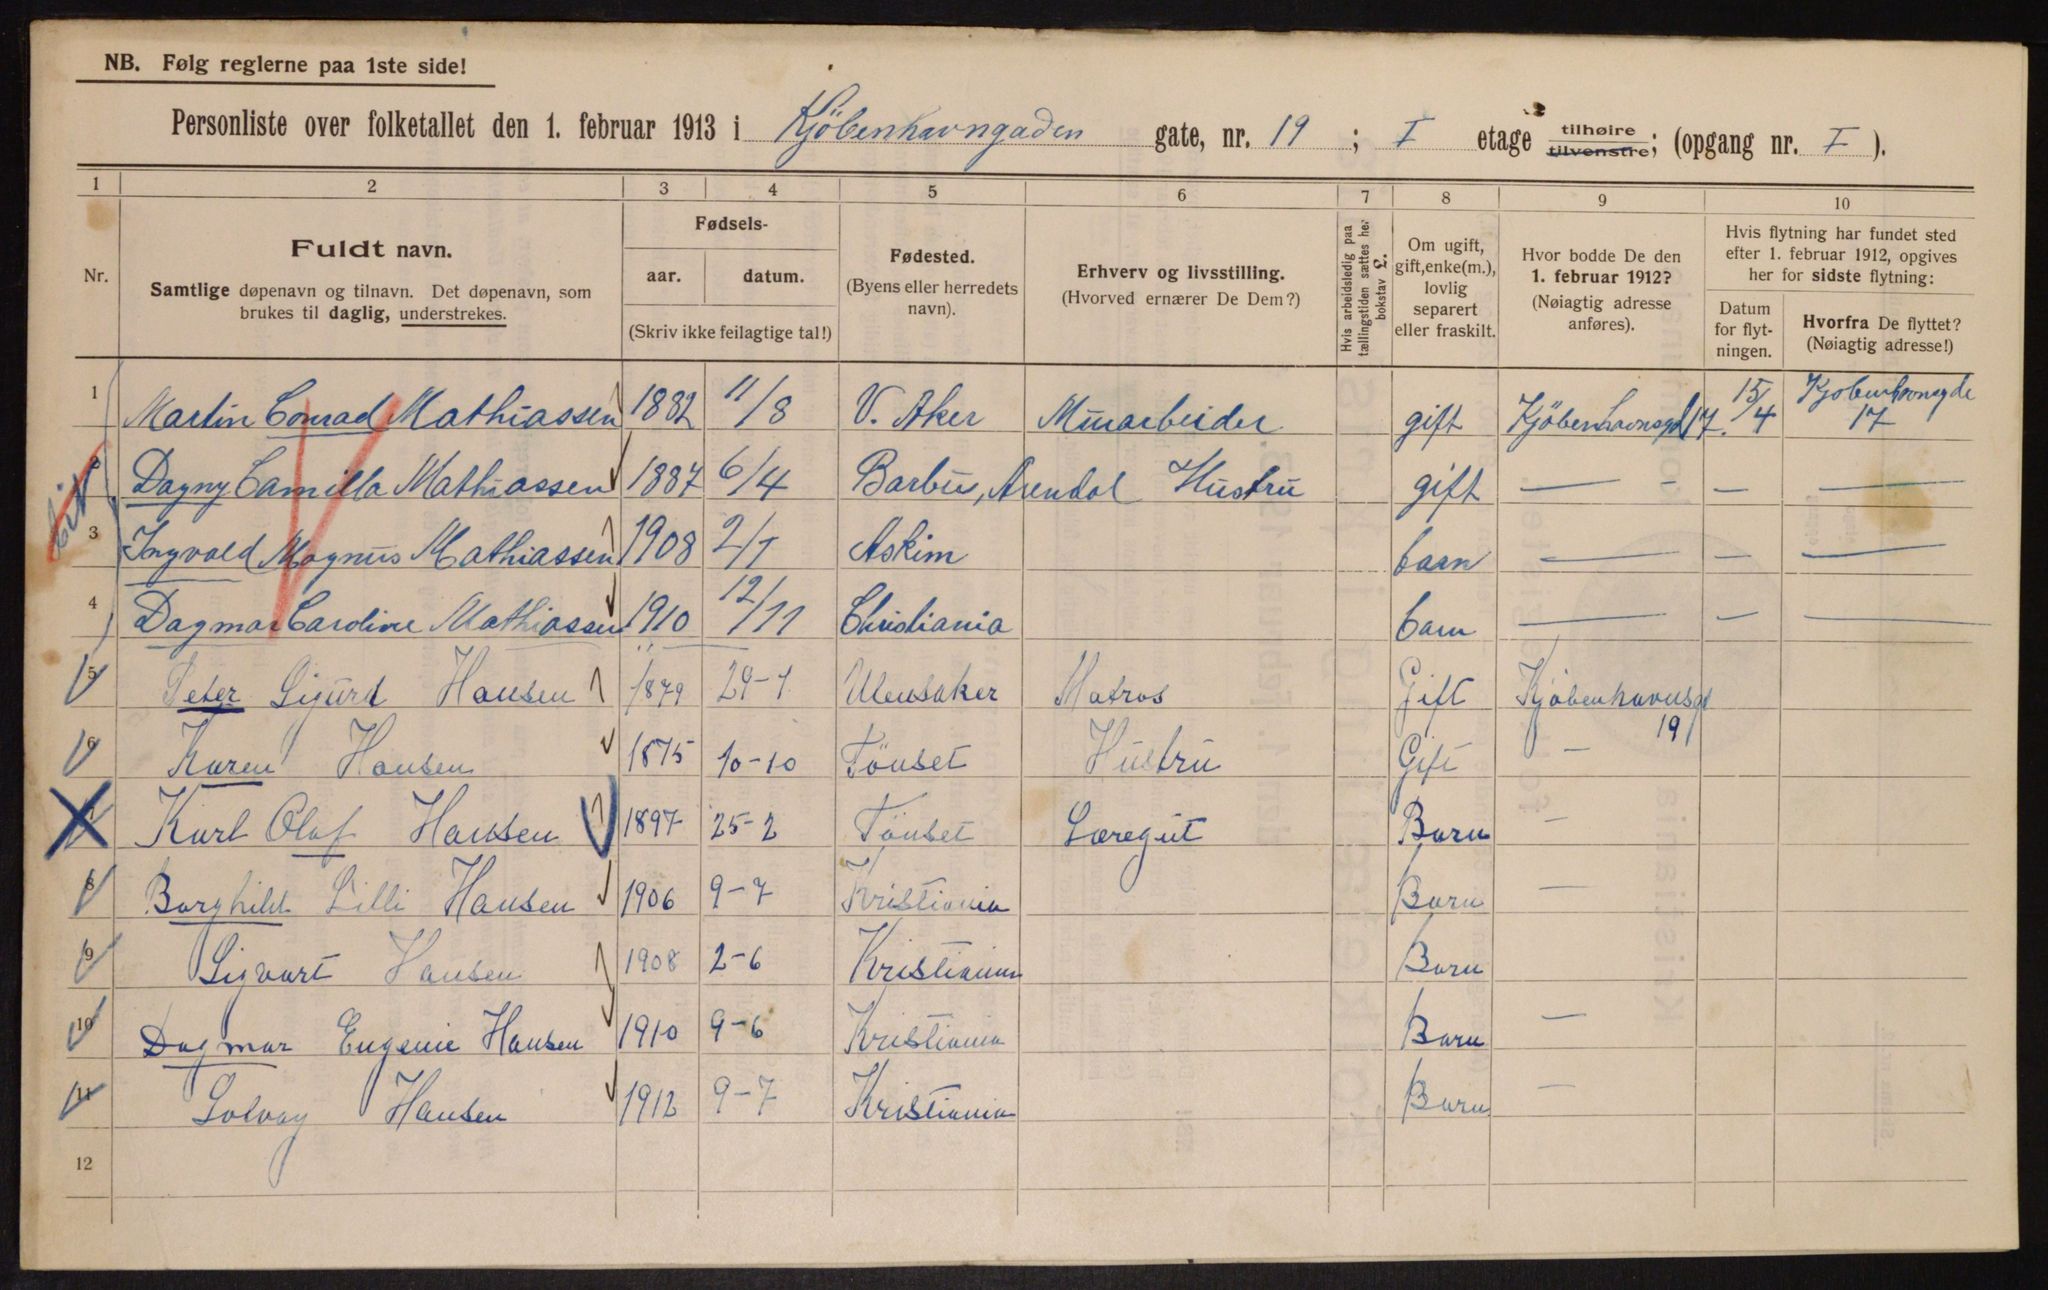 NB. Følg reglerne paa 1ste side!
Personliste over folketallet den 1. februar 1913 i Kjöbenhavngaden gate, nr. 19 ; I etage tilhøire tilvenstre; (opgang nr. I ).
1 2 3 4 5 6 7 8 9 10
Nr.
Fuldt navn.
Samtlige døpenavn og tilnavn. Det døpenavn, som
brukes til daglig, understrekes.
Fødsels-
aar. datum.
(Skriv ikke feilagtige tal!)
Fødested.
(Byens eller herredets
navn).
Erhverv og livsstilling.
(Hvorved ernærer De Dem?)
Hvis arbeidsledig paa
tællingstiden sættes her
bokstav L.
Om ugift,
gift, enke(m.),
lovlig
separert
eller fraskilt.
Hvor bodde De den
1. februar 1912?
(Nøiagtig adresse
anføres).
Hvis flytning har fundet sted
efter 1. februar 1912, opgives
her for sidste flytning:
Datum
for flyt-
ningen.
Hvorfra De flyttet?
(Nøiagtig adresse!)
1 Martin Conrad Mathiassen 1882 11/8 V. Aker Murarbeider gift Kjöbenhavnsgd 17. 15/4 Kjobenhavnsgde 17
2 Dagny Camilla Mathiassen 1887 6/4 Barbu, Arendal Hustru gift — — —
3 Ingvald Magnus Mathiassen 1908 2/1 Askim barn — — —
4 Dagmar Caroline Mathiassen 1910 12/11 Christiania barn — — —
5 Peter Sigurd Hansen 1879 29-1 Ulensaker Matros Gift Kjöbenhavnsgt 19
6 Karen Hansen 1875 10-10 Tönset Hustru Gift —
7 Karl Olaf Hansen 1897 25-2 Tönset Læregut Barn —
8 Borghild Lilli Hansen 1906 9-7 Kristiania Barn —
9 Sigvart Hansen 1908 2-6 Kristiania Barn —
10 Dagmar Eugenie Hansen 1910 9-6 Kristiania Barn —
11 Solvay Hansen 1912 9-7 Kristiania Barn —
12